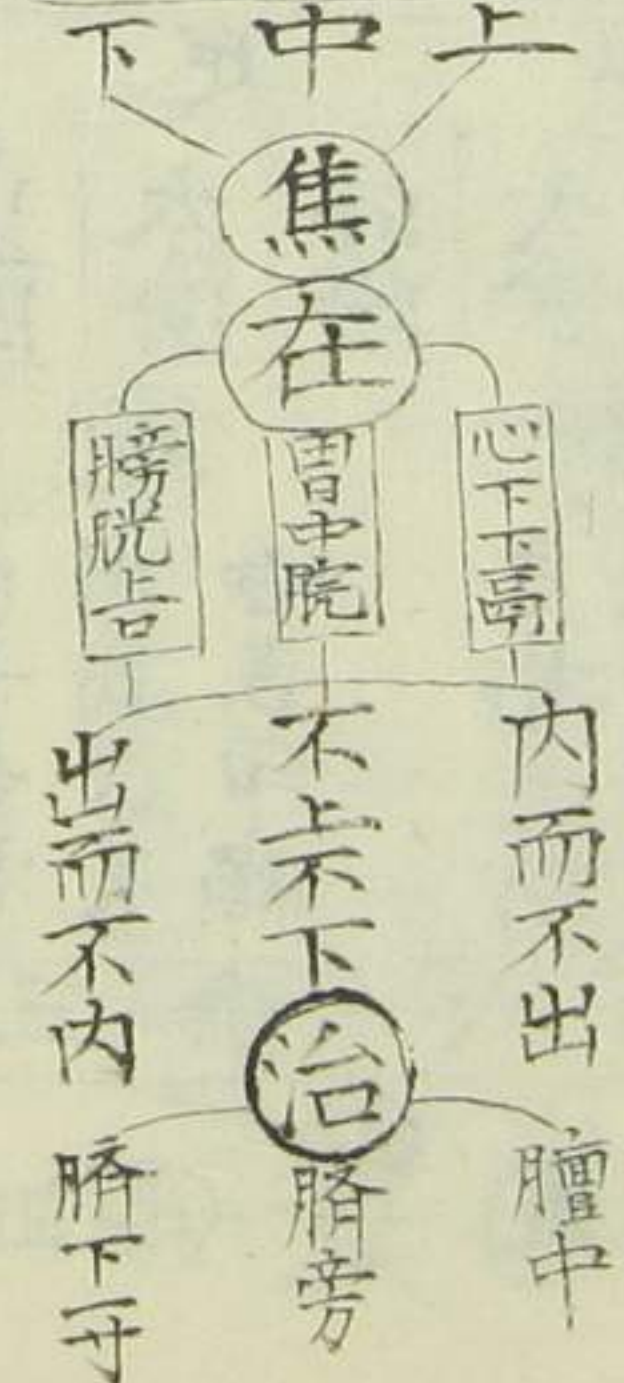 上
中
下
焦
在
心下下鬲
胃中脘
膀胱上口
内而不出
不上不下
出而不内
治
膻中
臍旁
臍下一寸